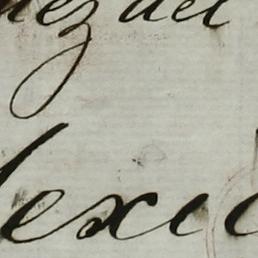 ez del
exic